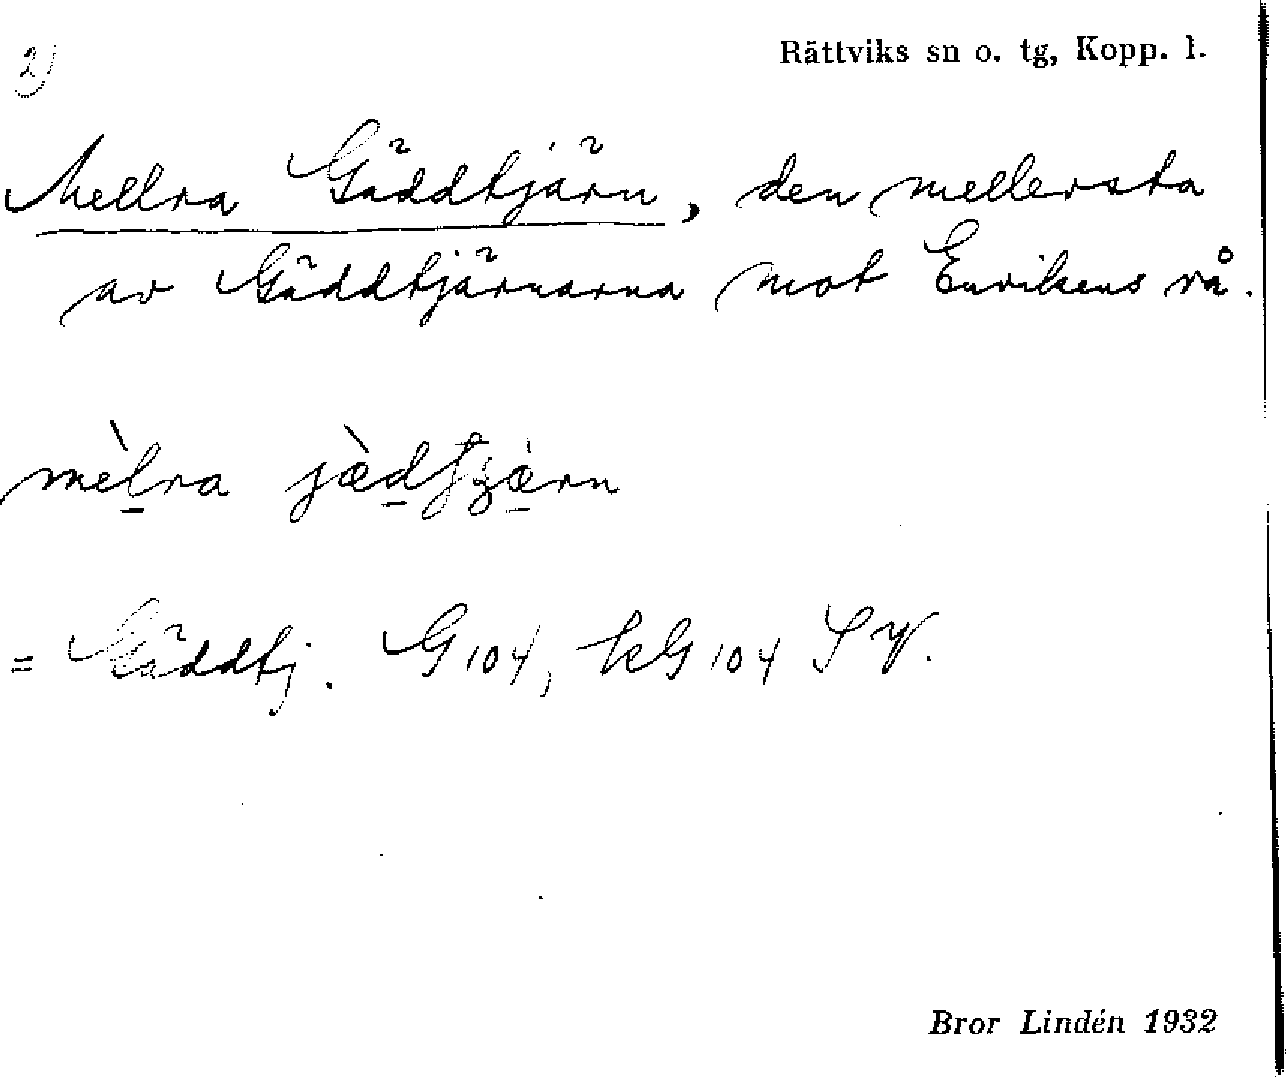 2)
Rättviks sn o. tg, Kopp. l.
Mellra Gäddtjärn, den mellersta
av Gäddtjärnarna mot Envikens rå.
mèlra jæ̀dtjærn
= Gäddtj. G 104, kG 104 SV.
Bror Lindén 1932